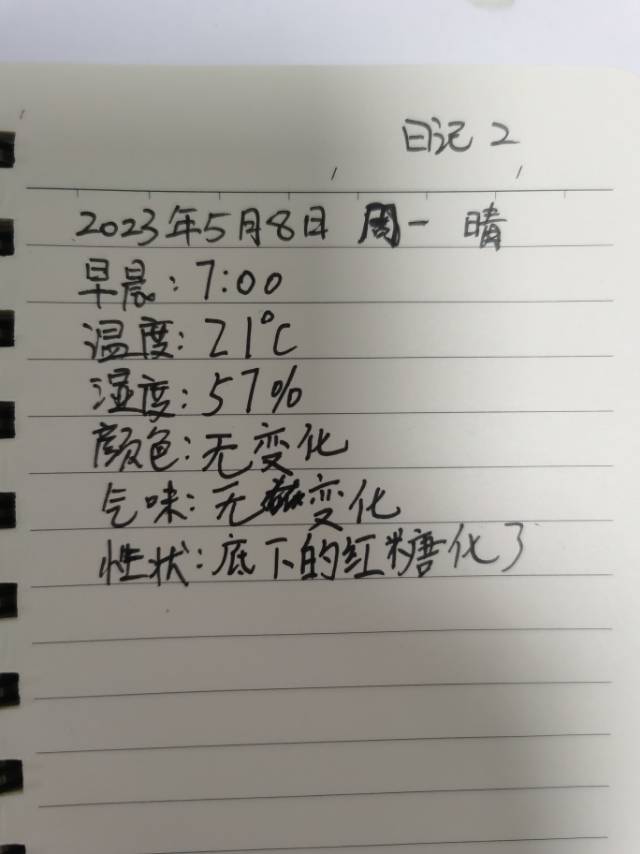 日记 2
2023年5月8日 周一 晴
早晨：7:00
温度：21°C
湿度：57%
颜色：无变化
气味：无变化
性状：底下的红糖化了